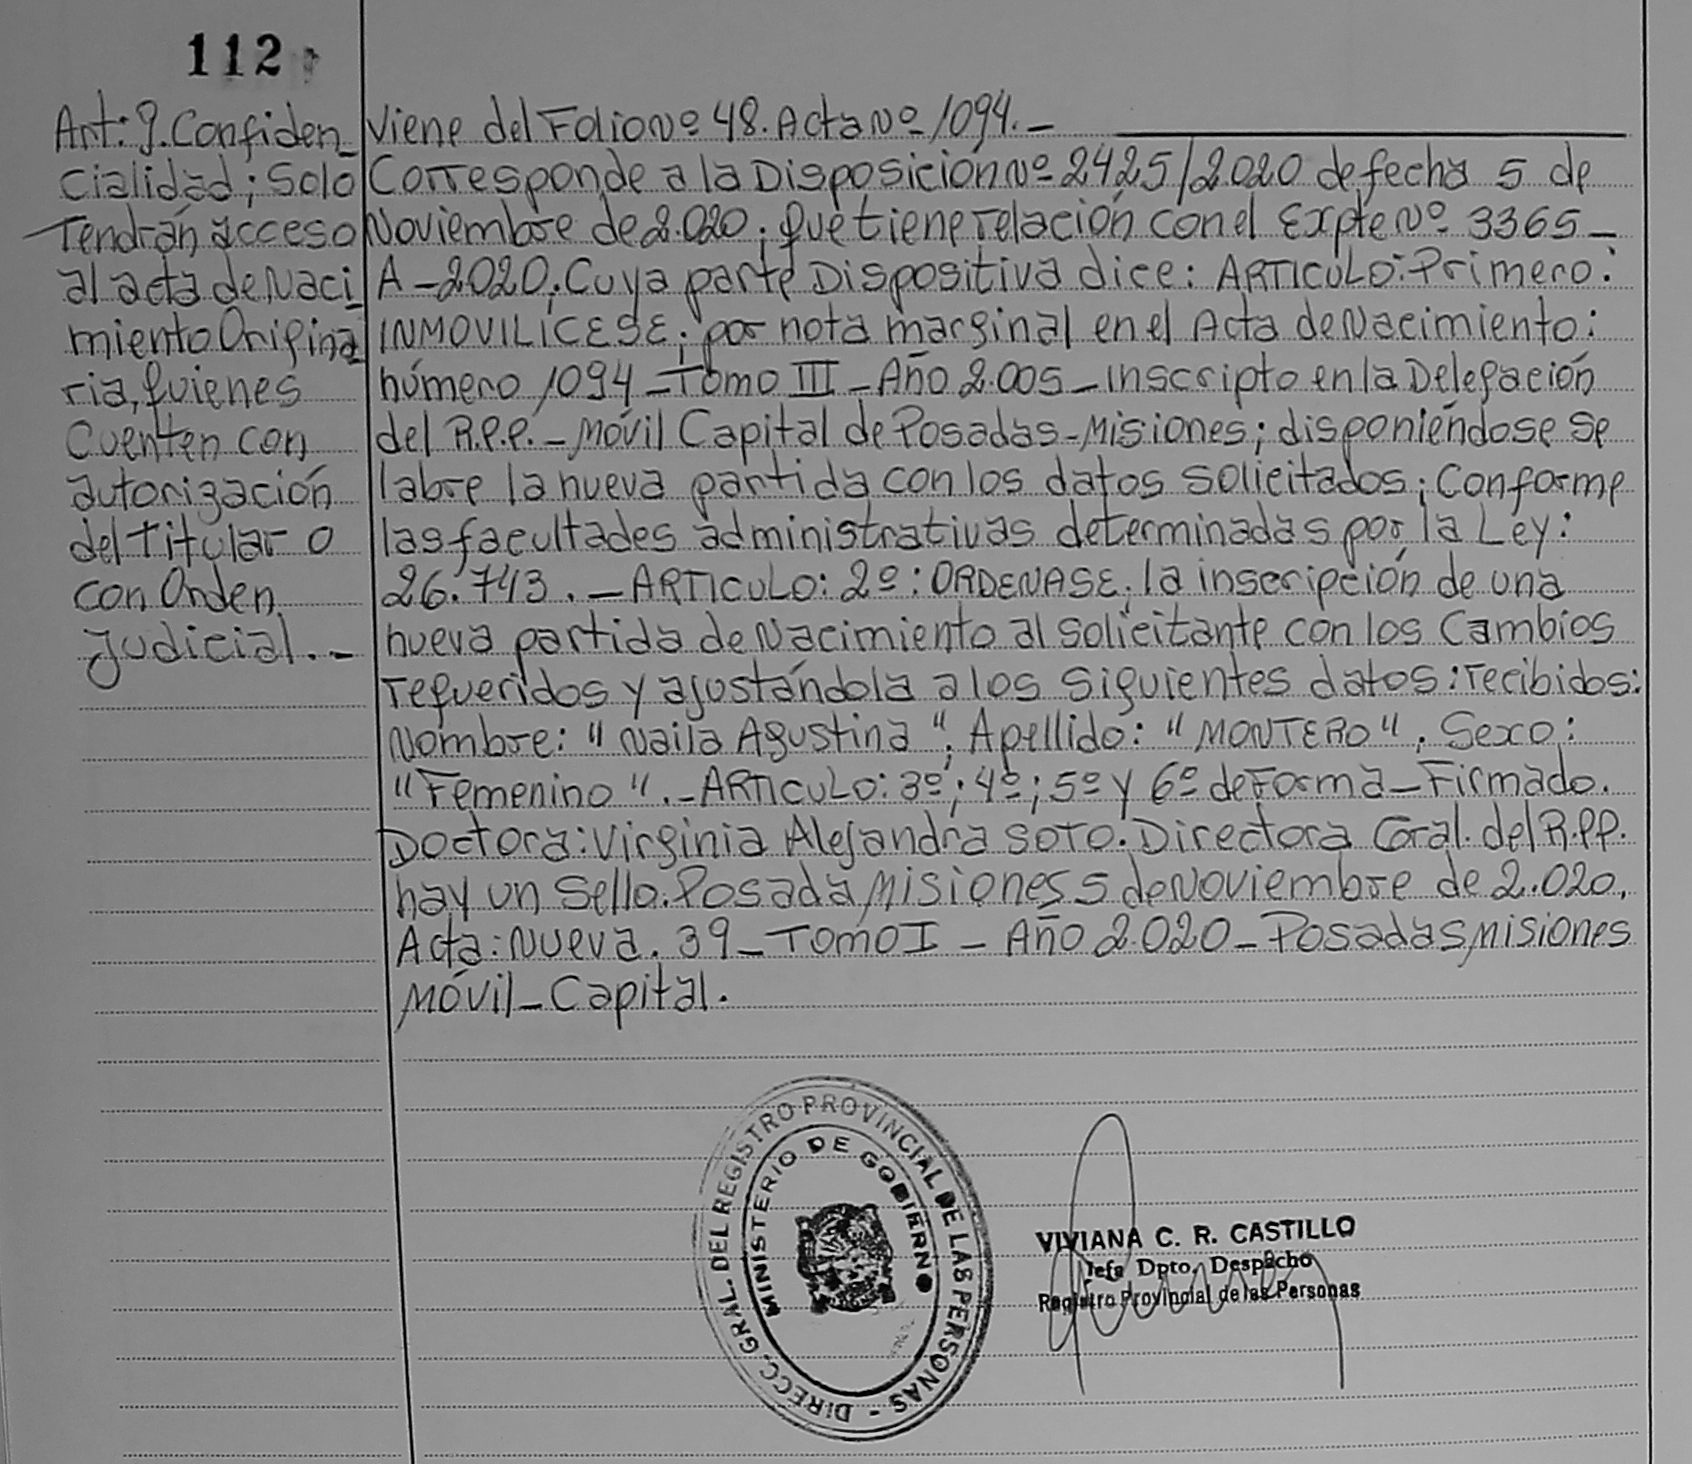 112
Art: 9. Confiden_
cialidad; Solo
Tendrán acceso
al acta de Naci_
miento Origina_
ria, quienes
Cuenten con
autorización
del titular o
con Orden
Judicial._
Viene del Folio Nº 48. Acta Nº 1094._
Corresponde a la Disposición Nº 2425/2.020 de fecha 5 de
Noviembre de 2.020; que tiene relación con el Expte Nº 3365_
A_2020; Cuya parte Dispositiva dice: ARTICULO: Primero:
INMOVILÍCESE; por nota marginal en el Acta de Nacimiento:
número 1094_Tomo III_Año 2.005_inscripto en la Delegación
del R.P.P._Móvil Capital de Posadas_Misiones; disponiéndose se
labre la nueva partida con los datos solicitados; Conforme
las facultades administrativas determinadas por la Ley:
26.743._ARTICULO: 2º: ORDENASE; la inscripción de una
nueva partida de Nacimiento al solicitante con los Cambios
requeridos y ajustándola a los siguientes datos: recibidos:
Nombre: "Naila Agustina"; Apellido: "MONTERO"; Sexo:
"Femenino"._ARTICULO: 3º; 4º; 5º y 6º de Forma_Firmado.
Doctora: Virginia Alejandra SOTO. Directora Gral. del R.P.P.
hay un Sello. Posada Misiones 5 de Noviembre de 2.020.
Acta: Nueva. 39_TOMO I_Año 2.020_Posadas Misiones
Móvil_Capital.
DIRECC. GRAL. DEL REGISTRO PROVINCIAL DE LAS PERSONAS -
MINISTERIO DE GOBIERNO
VIVIANA C. R. CASTILLO
Jefa Dpto. Despacho
Registro Provincial de las Personas